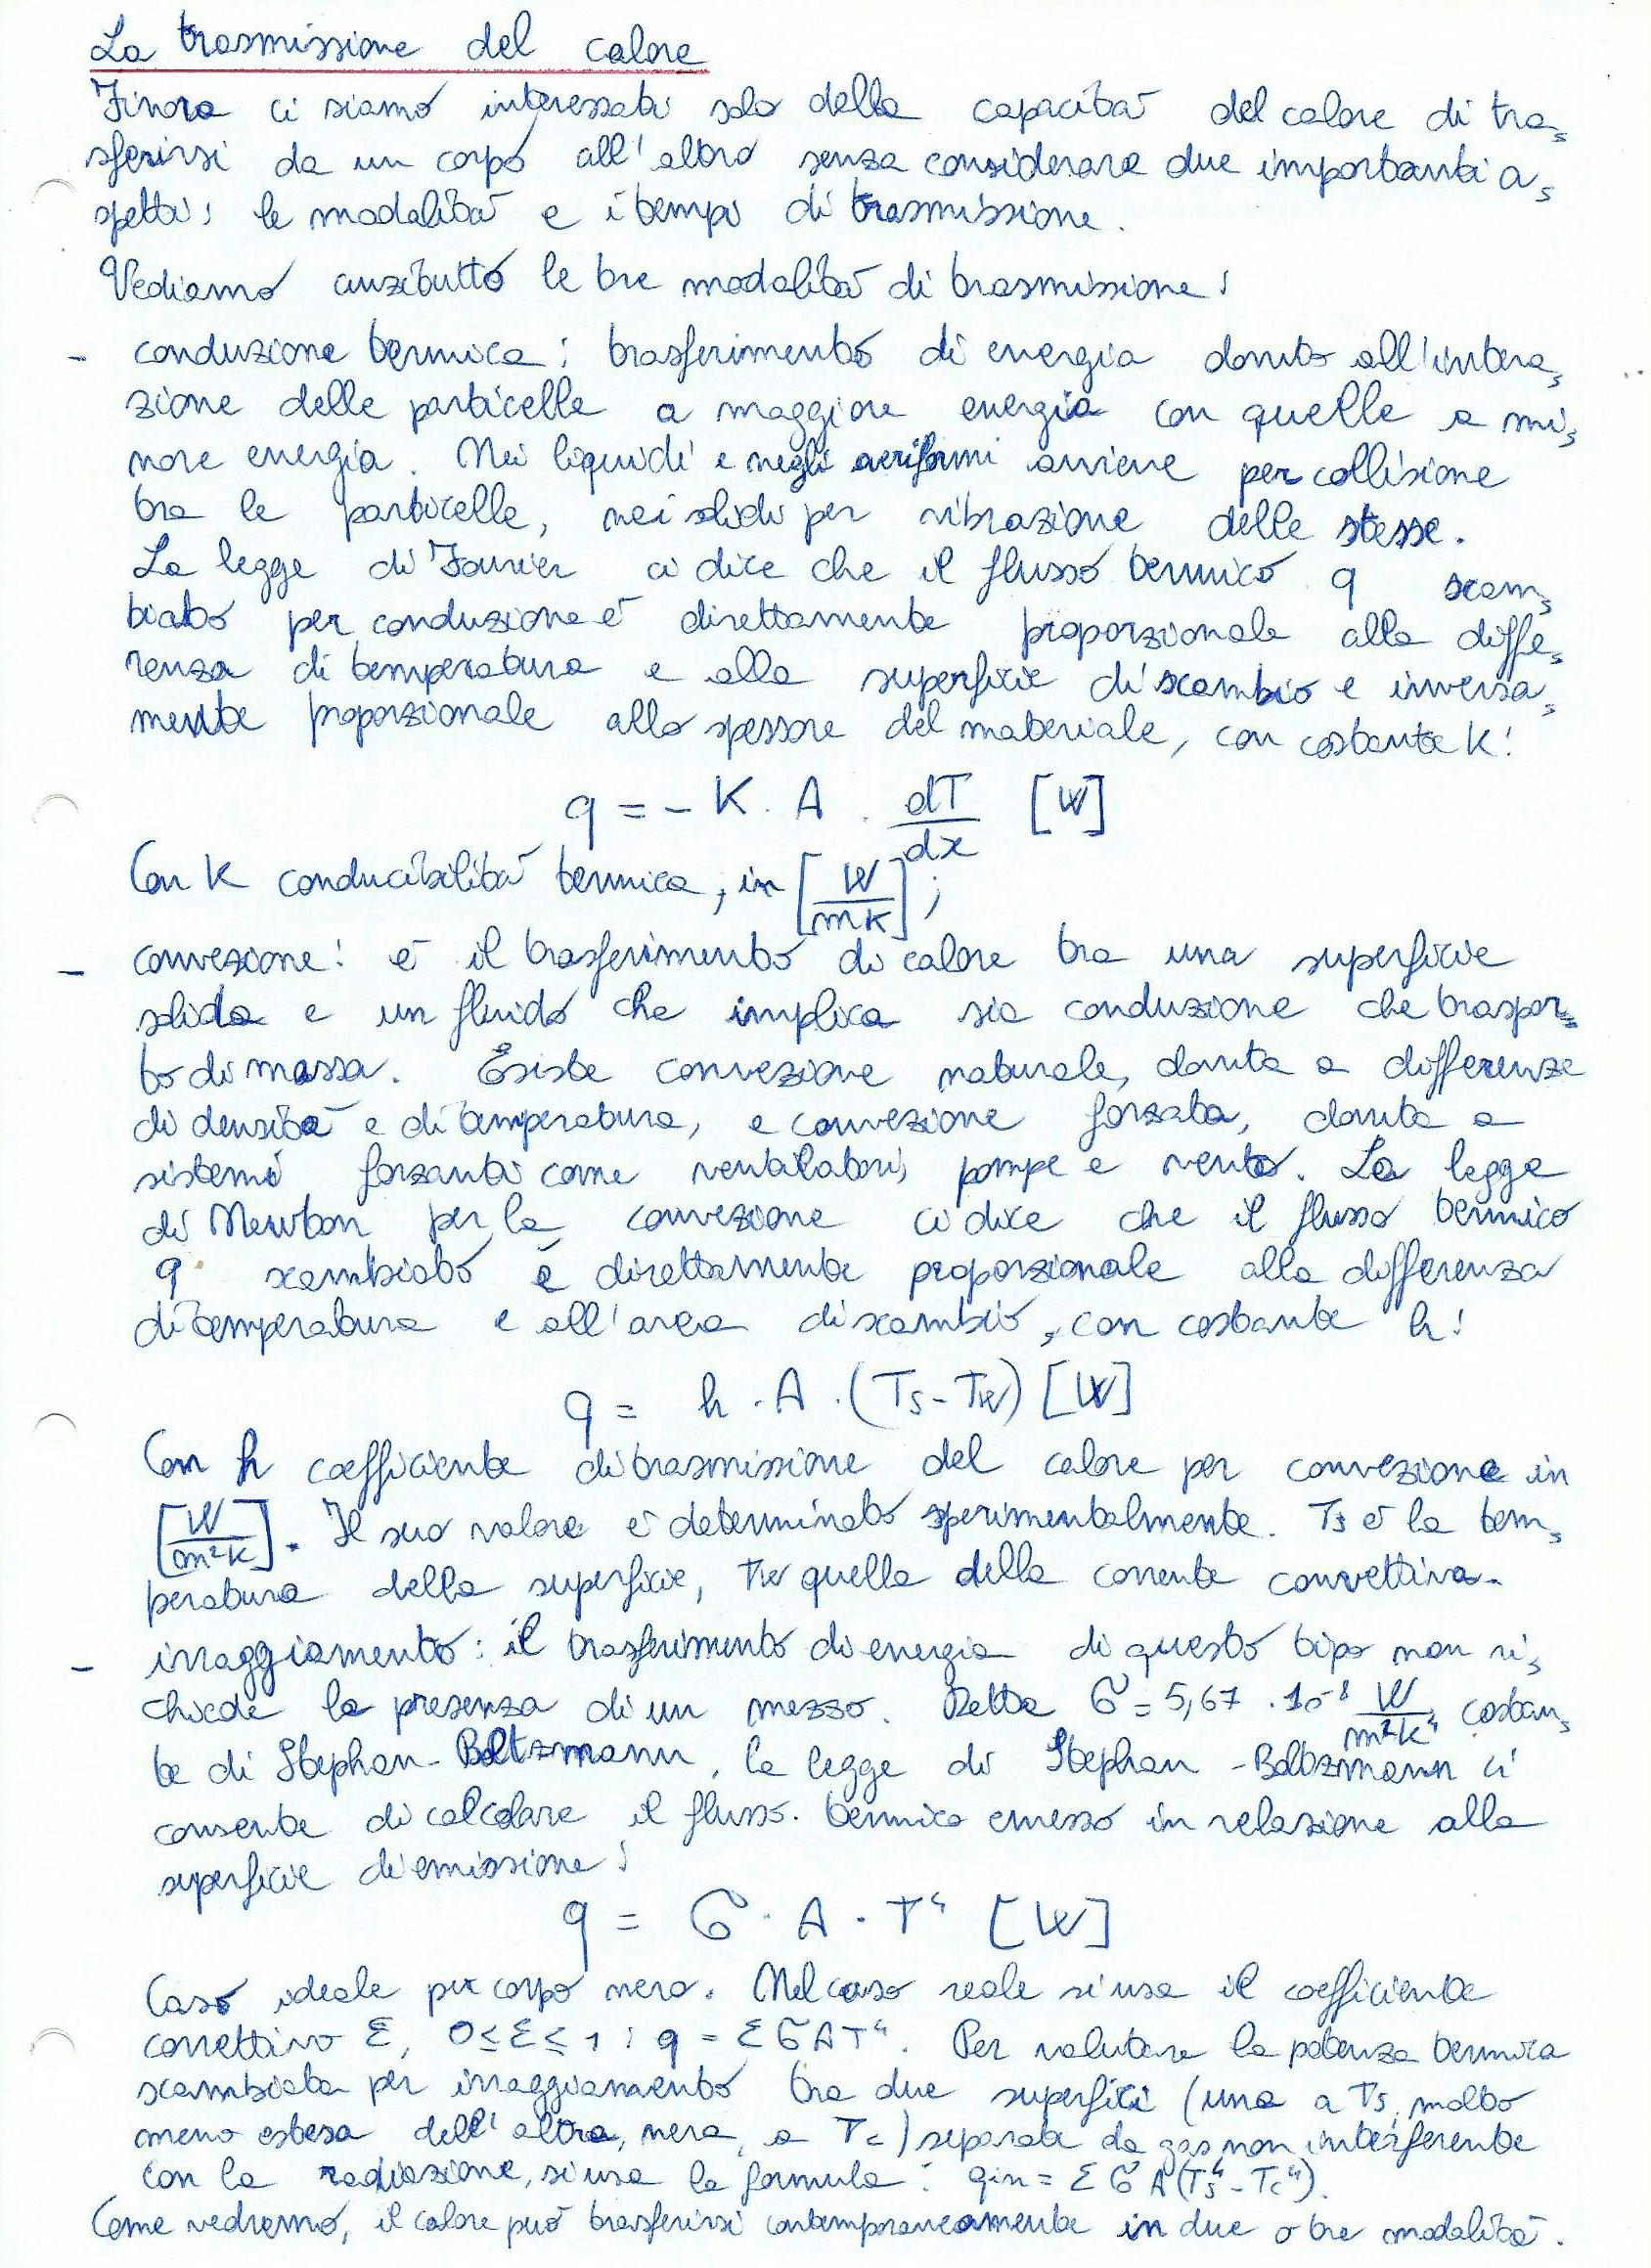 La trasmissione del calore
Finora ci siamo interessati solo della capacità del calore di tra=
sferirsi da un corpo all'altro senza considerare due importanti a=
spetti: le modalità e i tempi di trasmissione.
Vediamo anzitutto le tre modalità di trasmissione:
- conduzione termica: trasferimento di energia dovuto all'intera=
zione delle particelle a maggiore energia con quelle a mi=
nore energia. Nei liquidi e negli aeriformi avviene per collisione
tra le particelle, nei solidi per vibrazione delle stesse.
La legge di Fourier ci dice che il flusso termico q scam=
biato per conduzione è direttamente proporzionale alla diffe=
renza di temperatura e alla superficie di scambio e inversa=
mente proporzionale allo spessore del materiale, con costante K:
q = - K · A · dT/dx [W]
Con K conducibilità termica, in [W/mK];
- convezione: è il trasferimento di calore tra una superficie
solida e un fluido che implica sia conduzione che traspor=
to di massa. Esiste convezione naturale, dovuta a differenze
di densità e di temperatura, e convezione forzata, dovuta a
sistemi forzanti come ventilatori, pompe e vento. La legge
di Newton per la convezione ci dice che il flusso termico
q scambiato è direttamente proporzionale alla differenza
di temperatura e all'area di scambio, con costante h:
q = h · A · (Ts - Tw) [W]
Con h coefficiente di trasmissione del calore per convezione in
[W/m²K]. Il suo valore è determinato sperimentalmente. Ts è la tem=
peratura della superficie, Tw quella della corrente convettiva.
- irraggiamento: il trasferimento di energia di questo tipo non ri=
chiede la presenza di un mezzo. Detta σ = 5,67 · 10⁻⁸ W/m²K⁴ costan=
te di Stephan-Boltzmann, la legge di Stephan-Boltzmann ci
consente di calcolare il flusso termico emesso in relazione alla
superficie di emissione:
q = σ · A · T⁴ [W]
Caso ideale per corpo nero. Nel caso reale si usa il coefficiente
correttivo ε, 0 ≤ ε ≤ 1: q = ε σ A T⁴. Per valutare la potenza termica
scambiata per irraggiamento tra due superfici (una a Ts, molto
meno estesa dell'altra, nera, a Tc) separate da gas non interferente
con la radiazione, si usa la formula: qirr = ε σ A (Ts⁴ - Tc⁴).
Come vedremo, il calore può trasferirsi contemporaneamente in due o tre modalità.